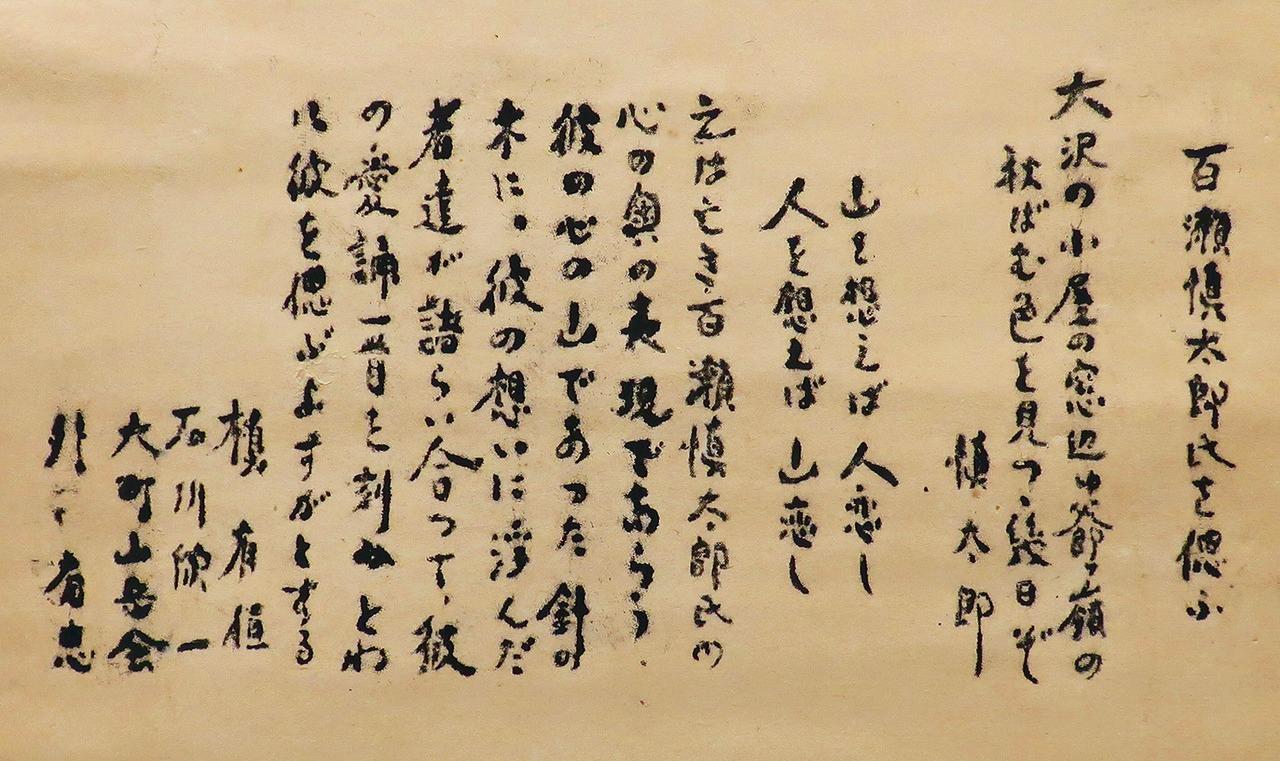 百瀬慎太郎氏を偲ふ
大沢の小屋の窓辺ゆ爺ヶ嶺の
秋ばむ色を見つゝ幾日ぞ
慎太郎
山を想えば 人恋し
人を想えば 山恋し
之は亡き百瀬慎太郎氏の
心の奥の表現であらう
彼の心の山であつた針の
木に、彼の想いに浮んだ
者達が語らい合つて、彼
の愛誦一首を刻みとわ
に彼を偲ぶよすがとする
槙 有恒
石川欣一
大町山岳会
外 有志